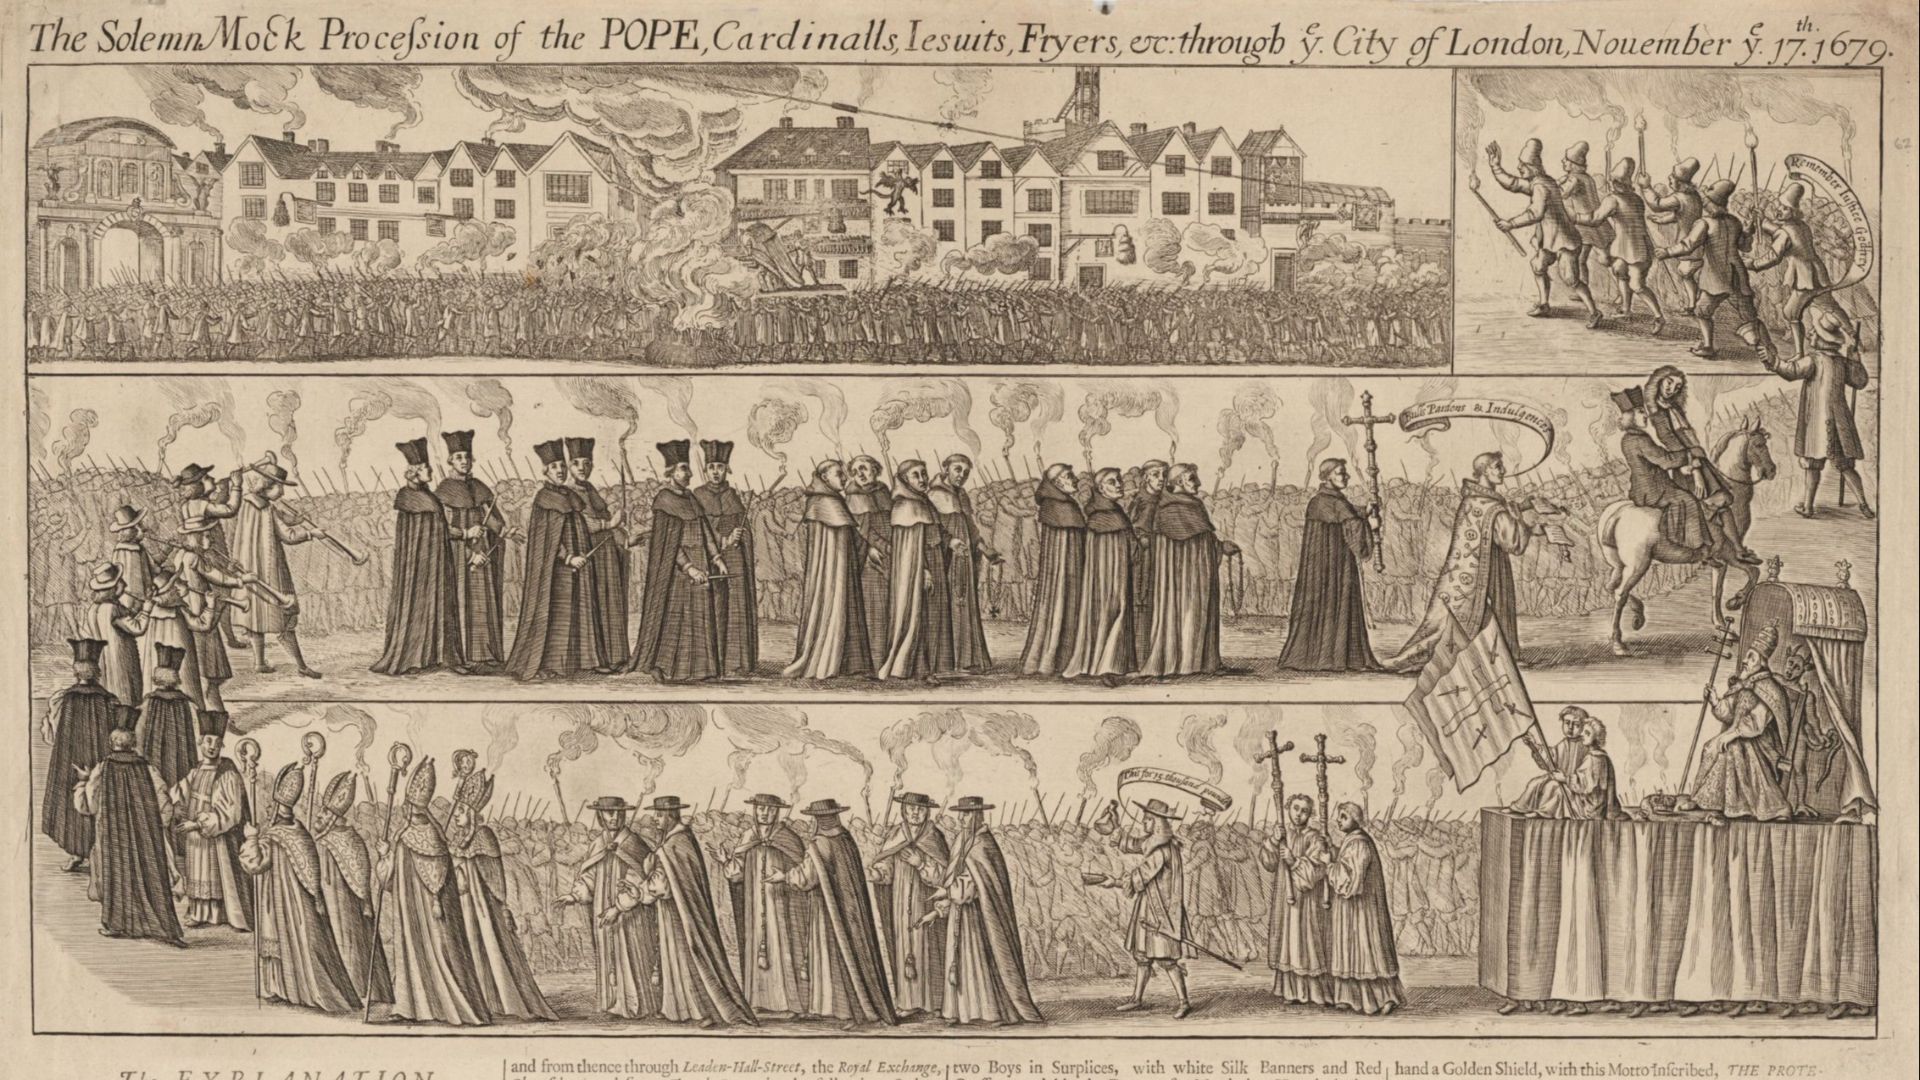 The Solemn Mock Procession of the POPE, Cardinalls, Iesuits, Fryers, &c: through yͤ. City of London, Nouember yͤ. 17.ᵗʰ 1679.
62
Remember Iustice Godfrey
Bulls Pardons & Indulgences
This for 15 thousand pounds
The EXPLANATION
and from thence through Leaden-Hall-Street, the Royal Exchange,
two Boys in Surplices, with white Silk Banners and Red
hand a Golden Shield, with this Motto Inscribed, THE PROTE-